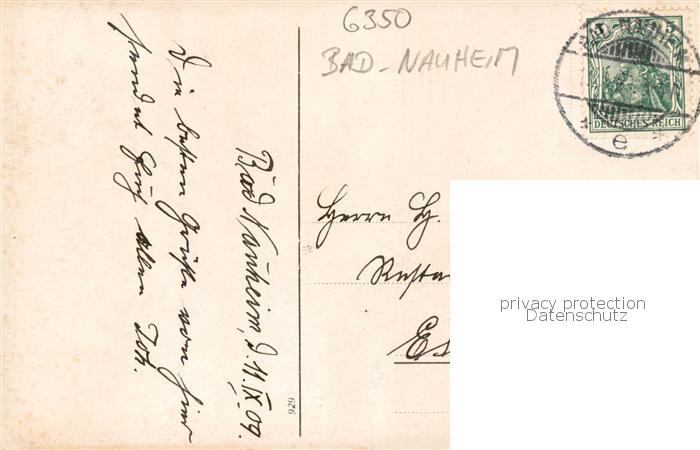 6350
BAD-NAUHEIM
BAD NAUHEIM
DEUTSCHES REICH
e
Bad Nauheim, d. 11.IX.09.
Die besten Grüße von hier
sendet Euch allen
Herrn H.
Resta
929
privacy protection
Datenschutz